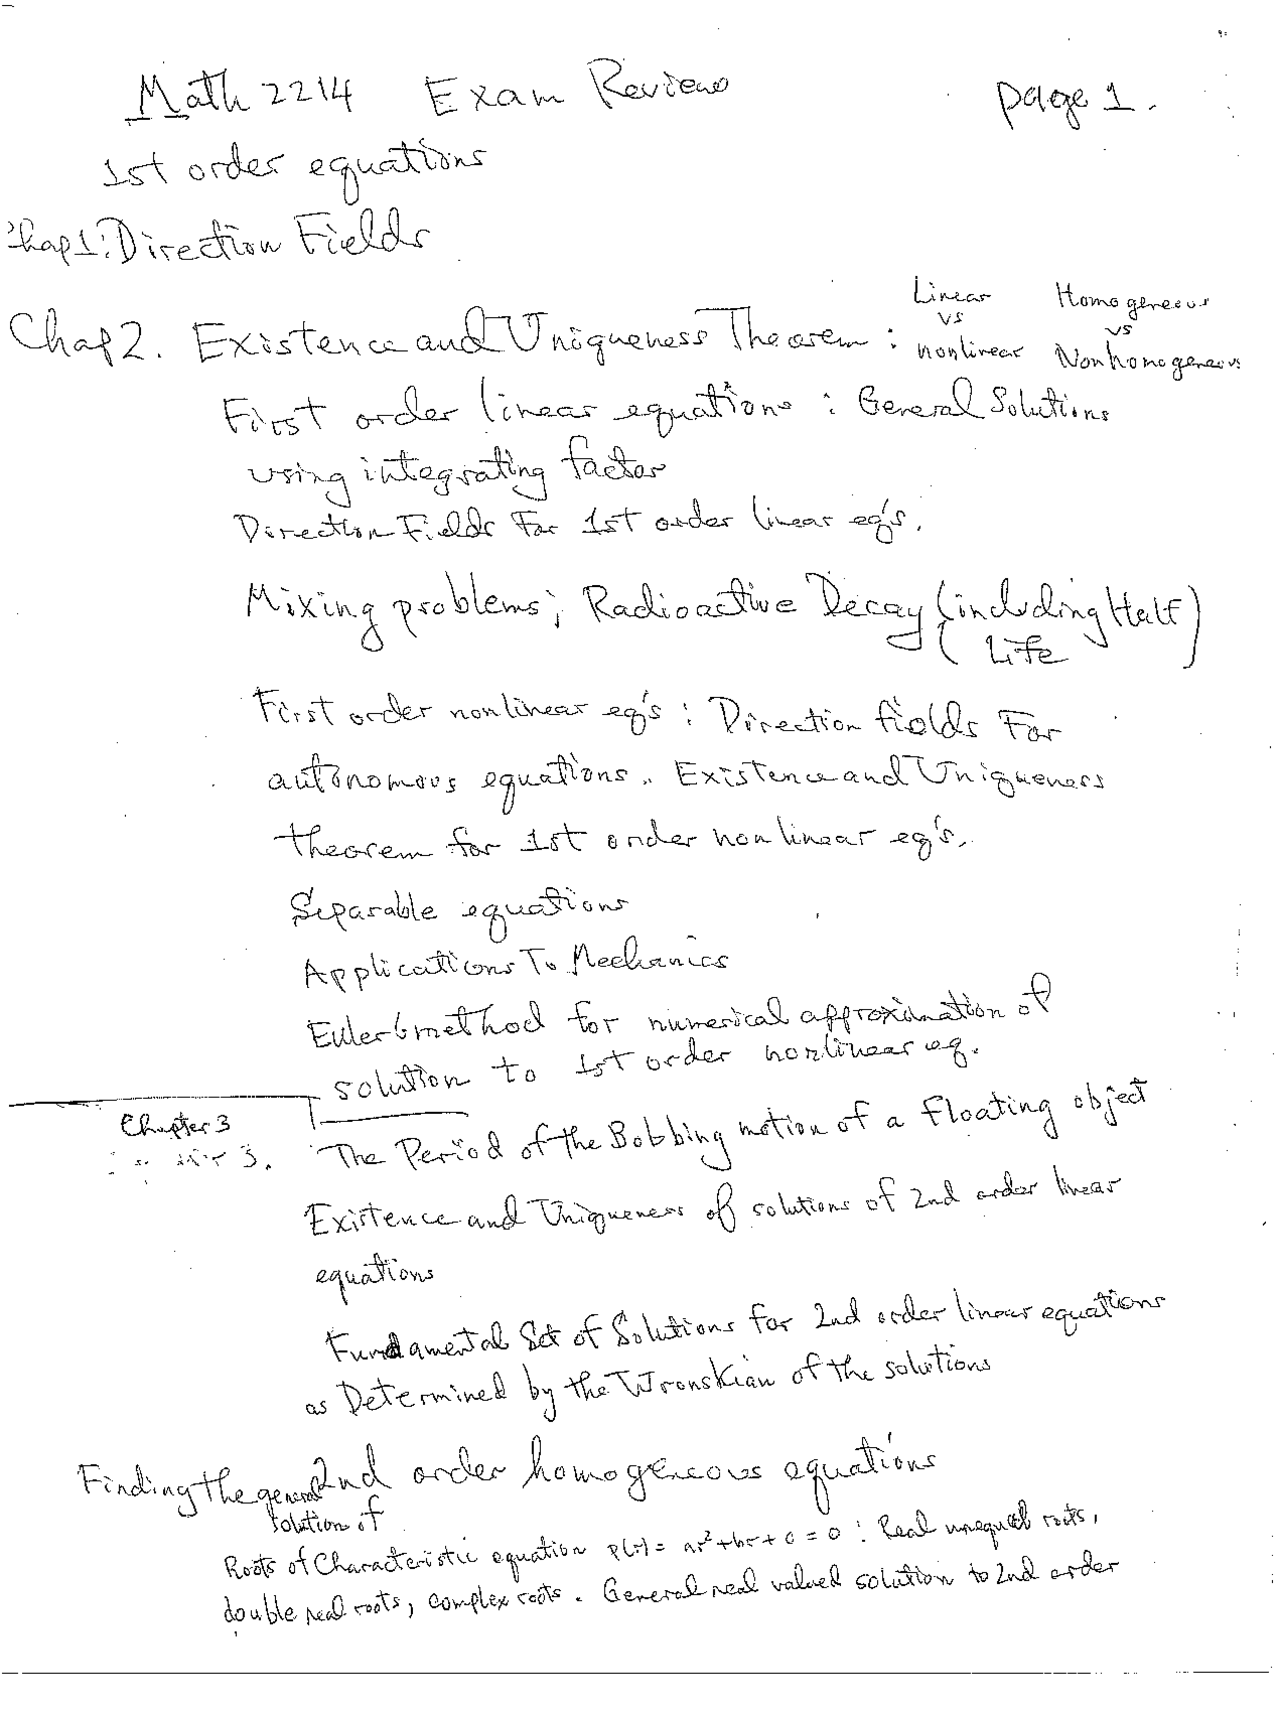 Math 2214 Exam Review page 1.
1st order equations
Chap1: Direction Fields
Linear Homogeneous
vs vs
Chap2. Existence and Uniqueness Theorem : nonlinear Nonhomogeneous
First order linear equations : General Solutions
using integrating factor
Direction Fields For 1st order linear eq's.
Mixing problems; Radioactive Decay (including Half
Life)
First order nonlinear eq's : Direction fields For
autonomous equations. Existence and Uniqueness
theorem for 1st order nonlinear eq's.
Separable equations
Applications To Mechanics
Euler's method for numerical approximation of
solution to 1st order nonlinear eq.
Chapter 3
3. The Period of the Bobbing motion of a Floating object
Existence and Uniqueness of solutions of 2nd order linear
equations
Fundamental Set of Solutions for 2nd order linear equations
as Determined by the Wronskian of the solutions
Finding the general 2nd order homogeneous equations
solution of
Roots of Characteristic equation p(r) = ar²+br+c = 0 : Real unequal roots,
double real roots, complex roots. General real valued solution to 2nd order